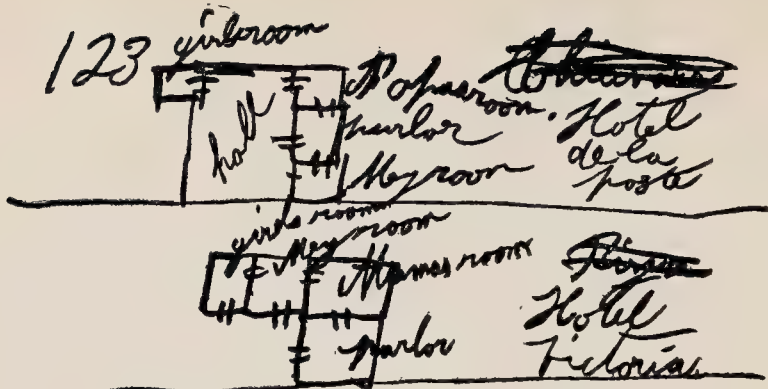 123 girls room
Papas room.
hall
parlor
My room
Hotel
de la
poste
girls room
My room
Mamas room
parlor
Hotel
Victoria